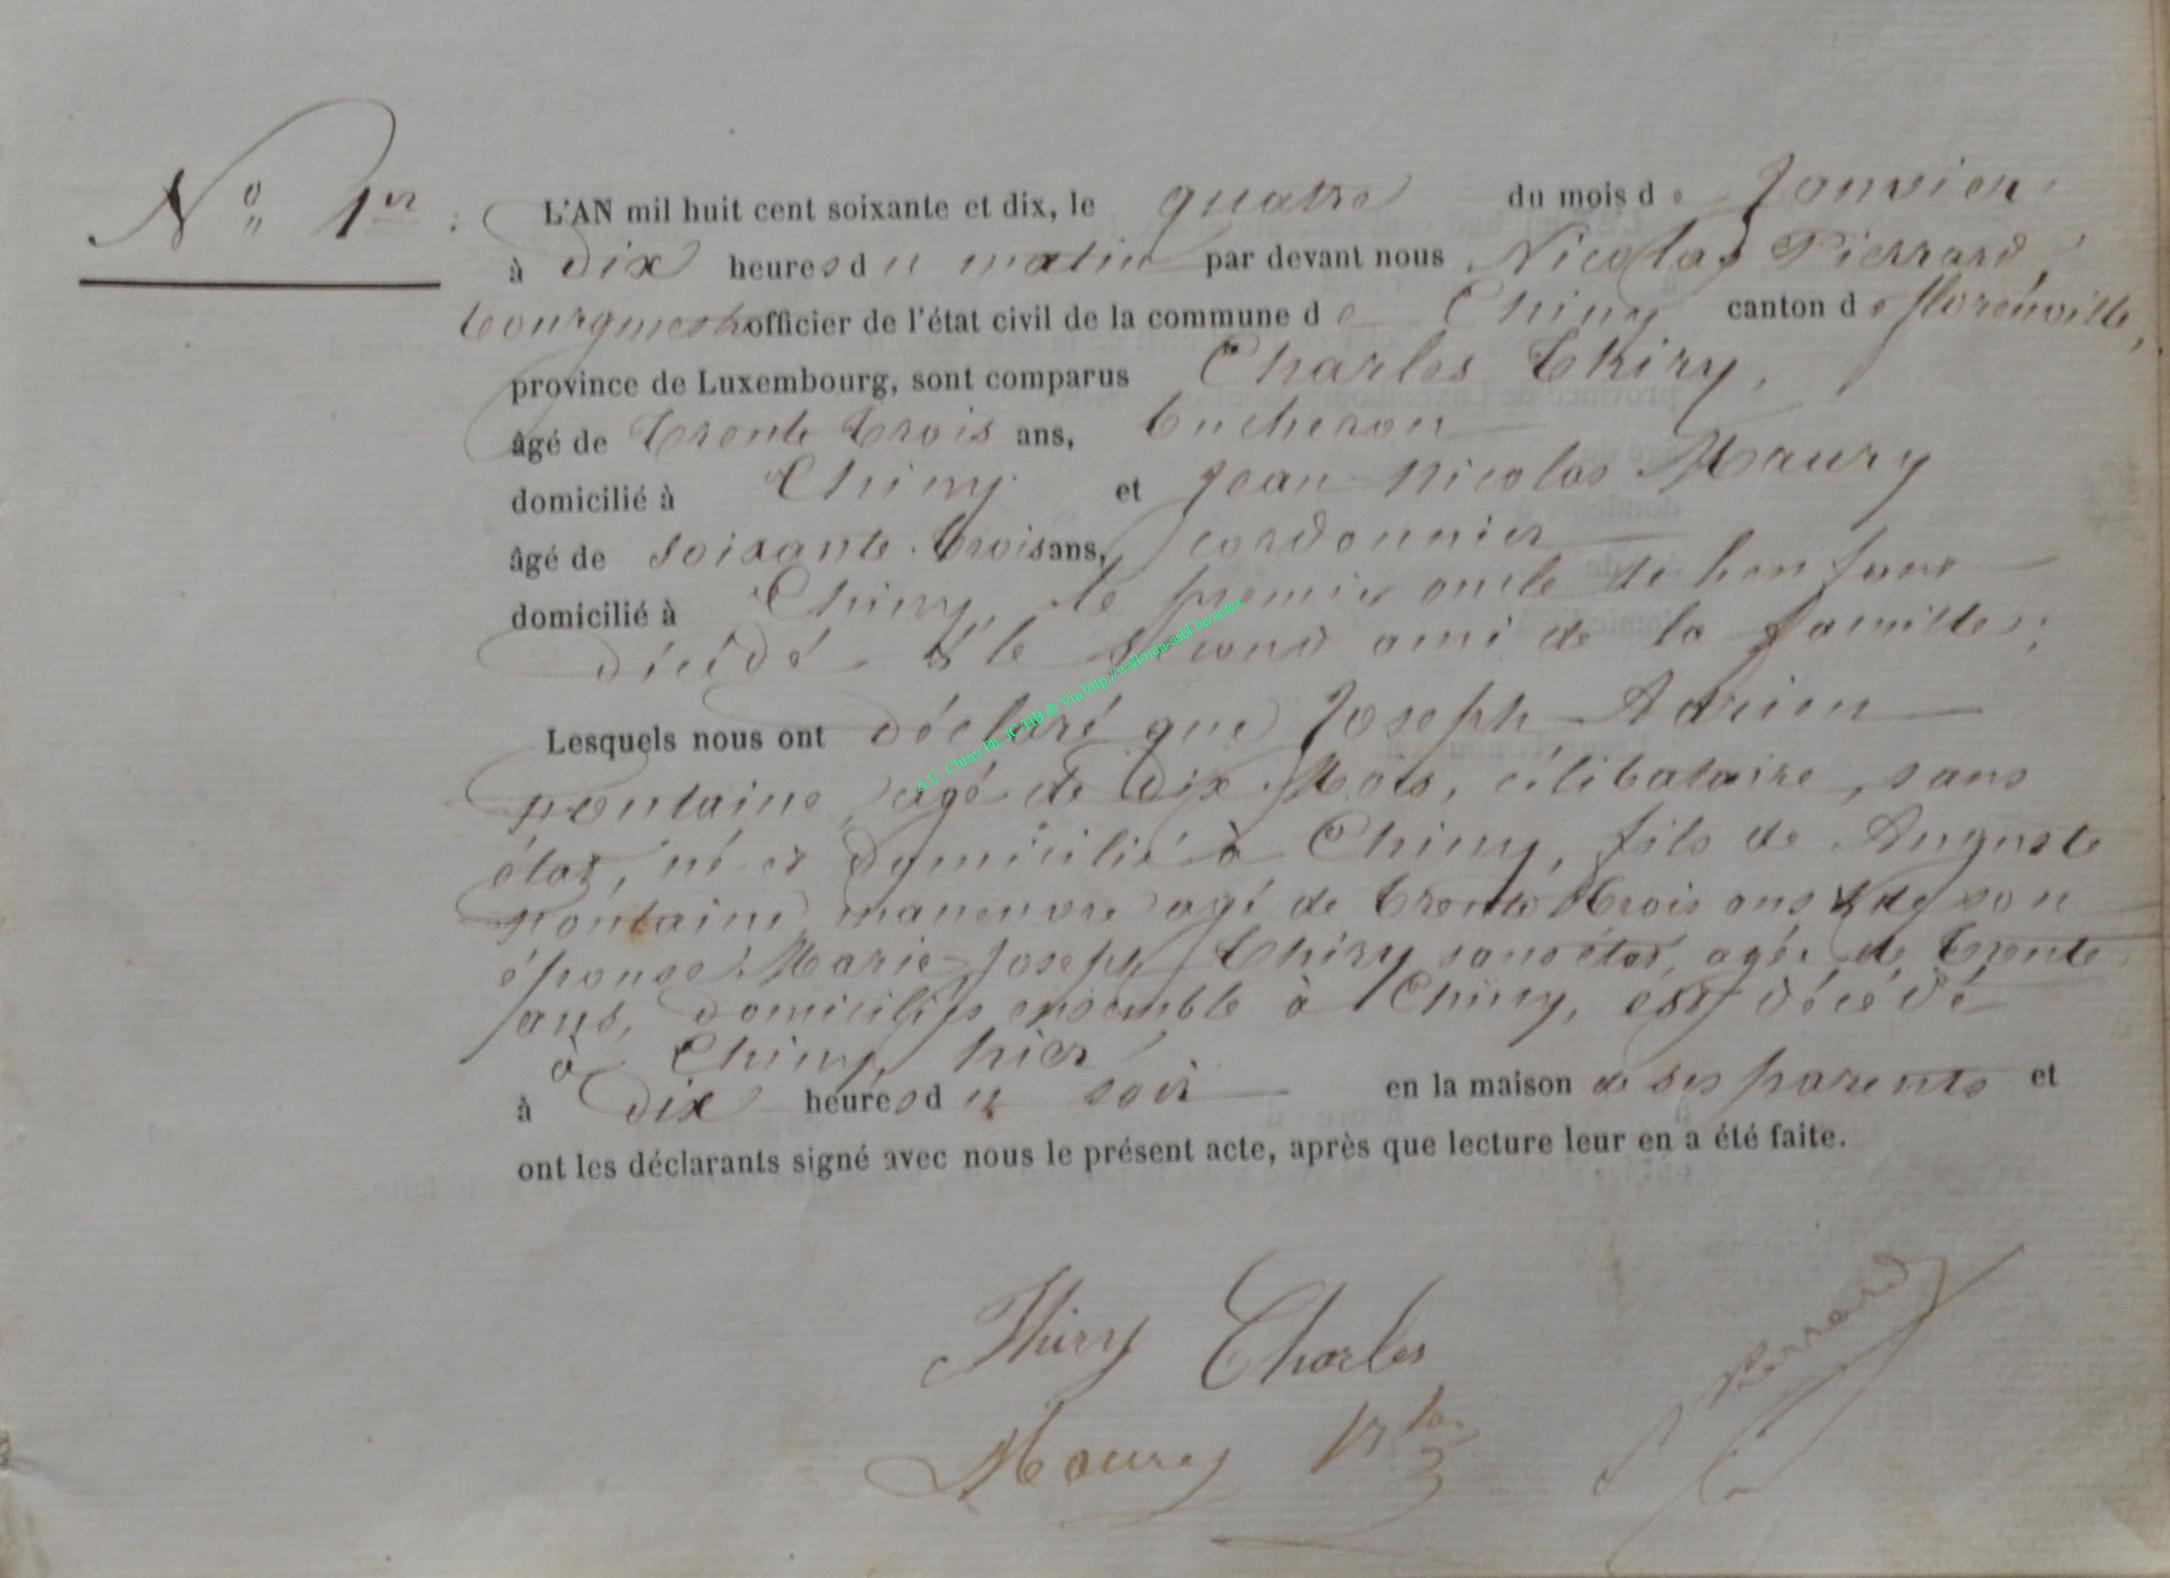 N° 1er
L'AN mil huit cent soixante et dix, le quatre du mois de Janvier
à dix heures du matin par devant nous Nicolas Pierrard,
bourgmestre officier de l'état civil de la commune de Chiny canton de florenville,
province de Luxembourg, sont comparus Charles Thiry,
âgé de trente trois ans, bucheron
domicilié à Chiny et Jean Nicolas Maury
âgé de soixante trois ans, cordonnier
domicilié à Chiny, le premier oncle de
décédé & le second ami de la famille;
Lesquels nous ont déclaré que Joseph Adrien
pontaine, agé de dix Mois, célibataire, sans
état, né et domicilié à Chiny, fils de Auguste
pontaine manœuvre agé de trente trois ans & de son
épouse Marie Joseph Thiry sans état, agée de trente
ans, domiciliés ensemble à Chiny, est décédé
à Chiny, hier
à dix heures du soir en la maison de ses parents et
ont les déclarants signé avec nous le présent acte, après que lecture leur en a été faite.
Thiry Charles
Maury
Pierrard
A.C. Chiny Ph. JC HB © Via http://wallonia-asbl be/actes